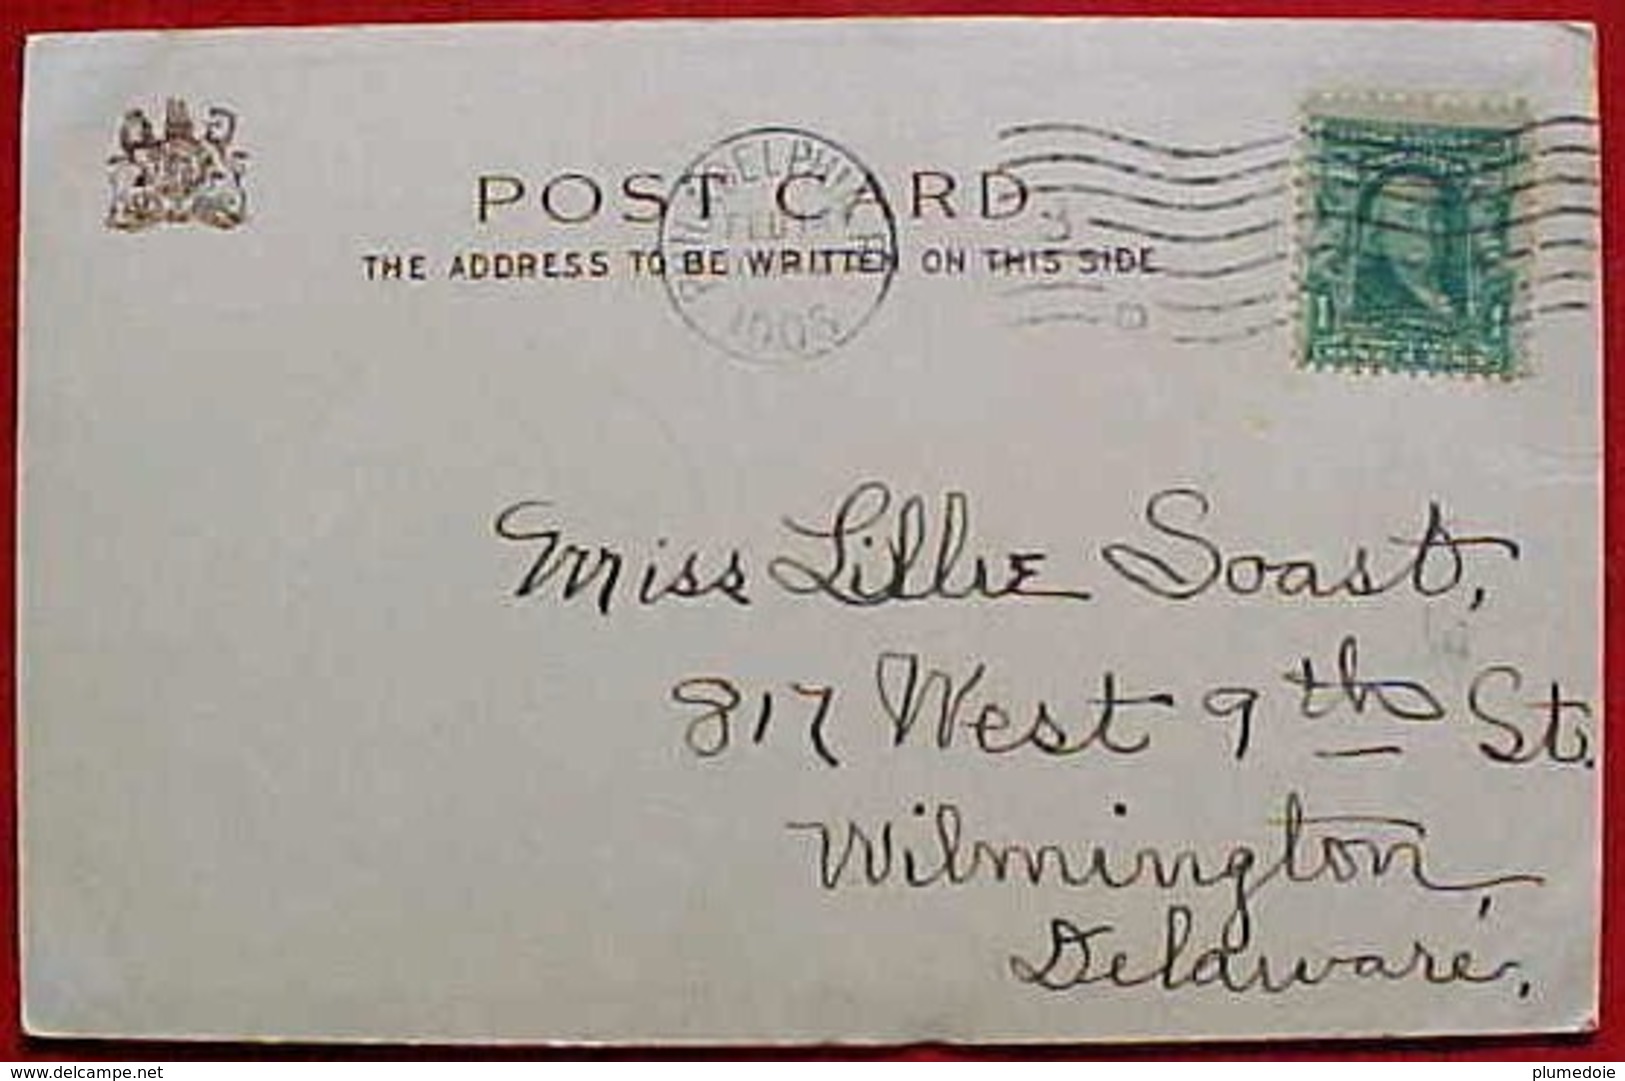 POST CARD
THE ADDRESS TO BE WRITTEN ON THIS SIDE
PHILADELPHIA
1905
1
Miss Lillie Soast,
817 West 9th St.
Wilmington,
Delaware,
www.delcampe.net
plumedoie